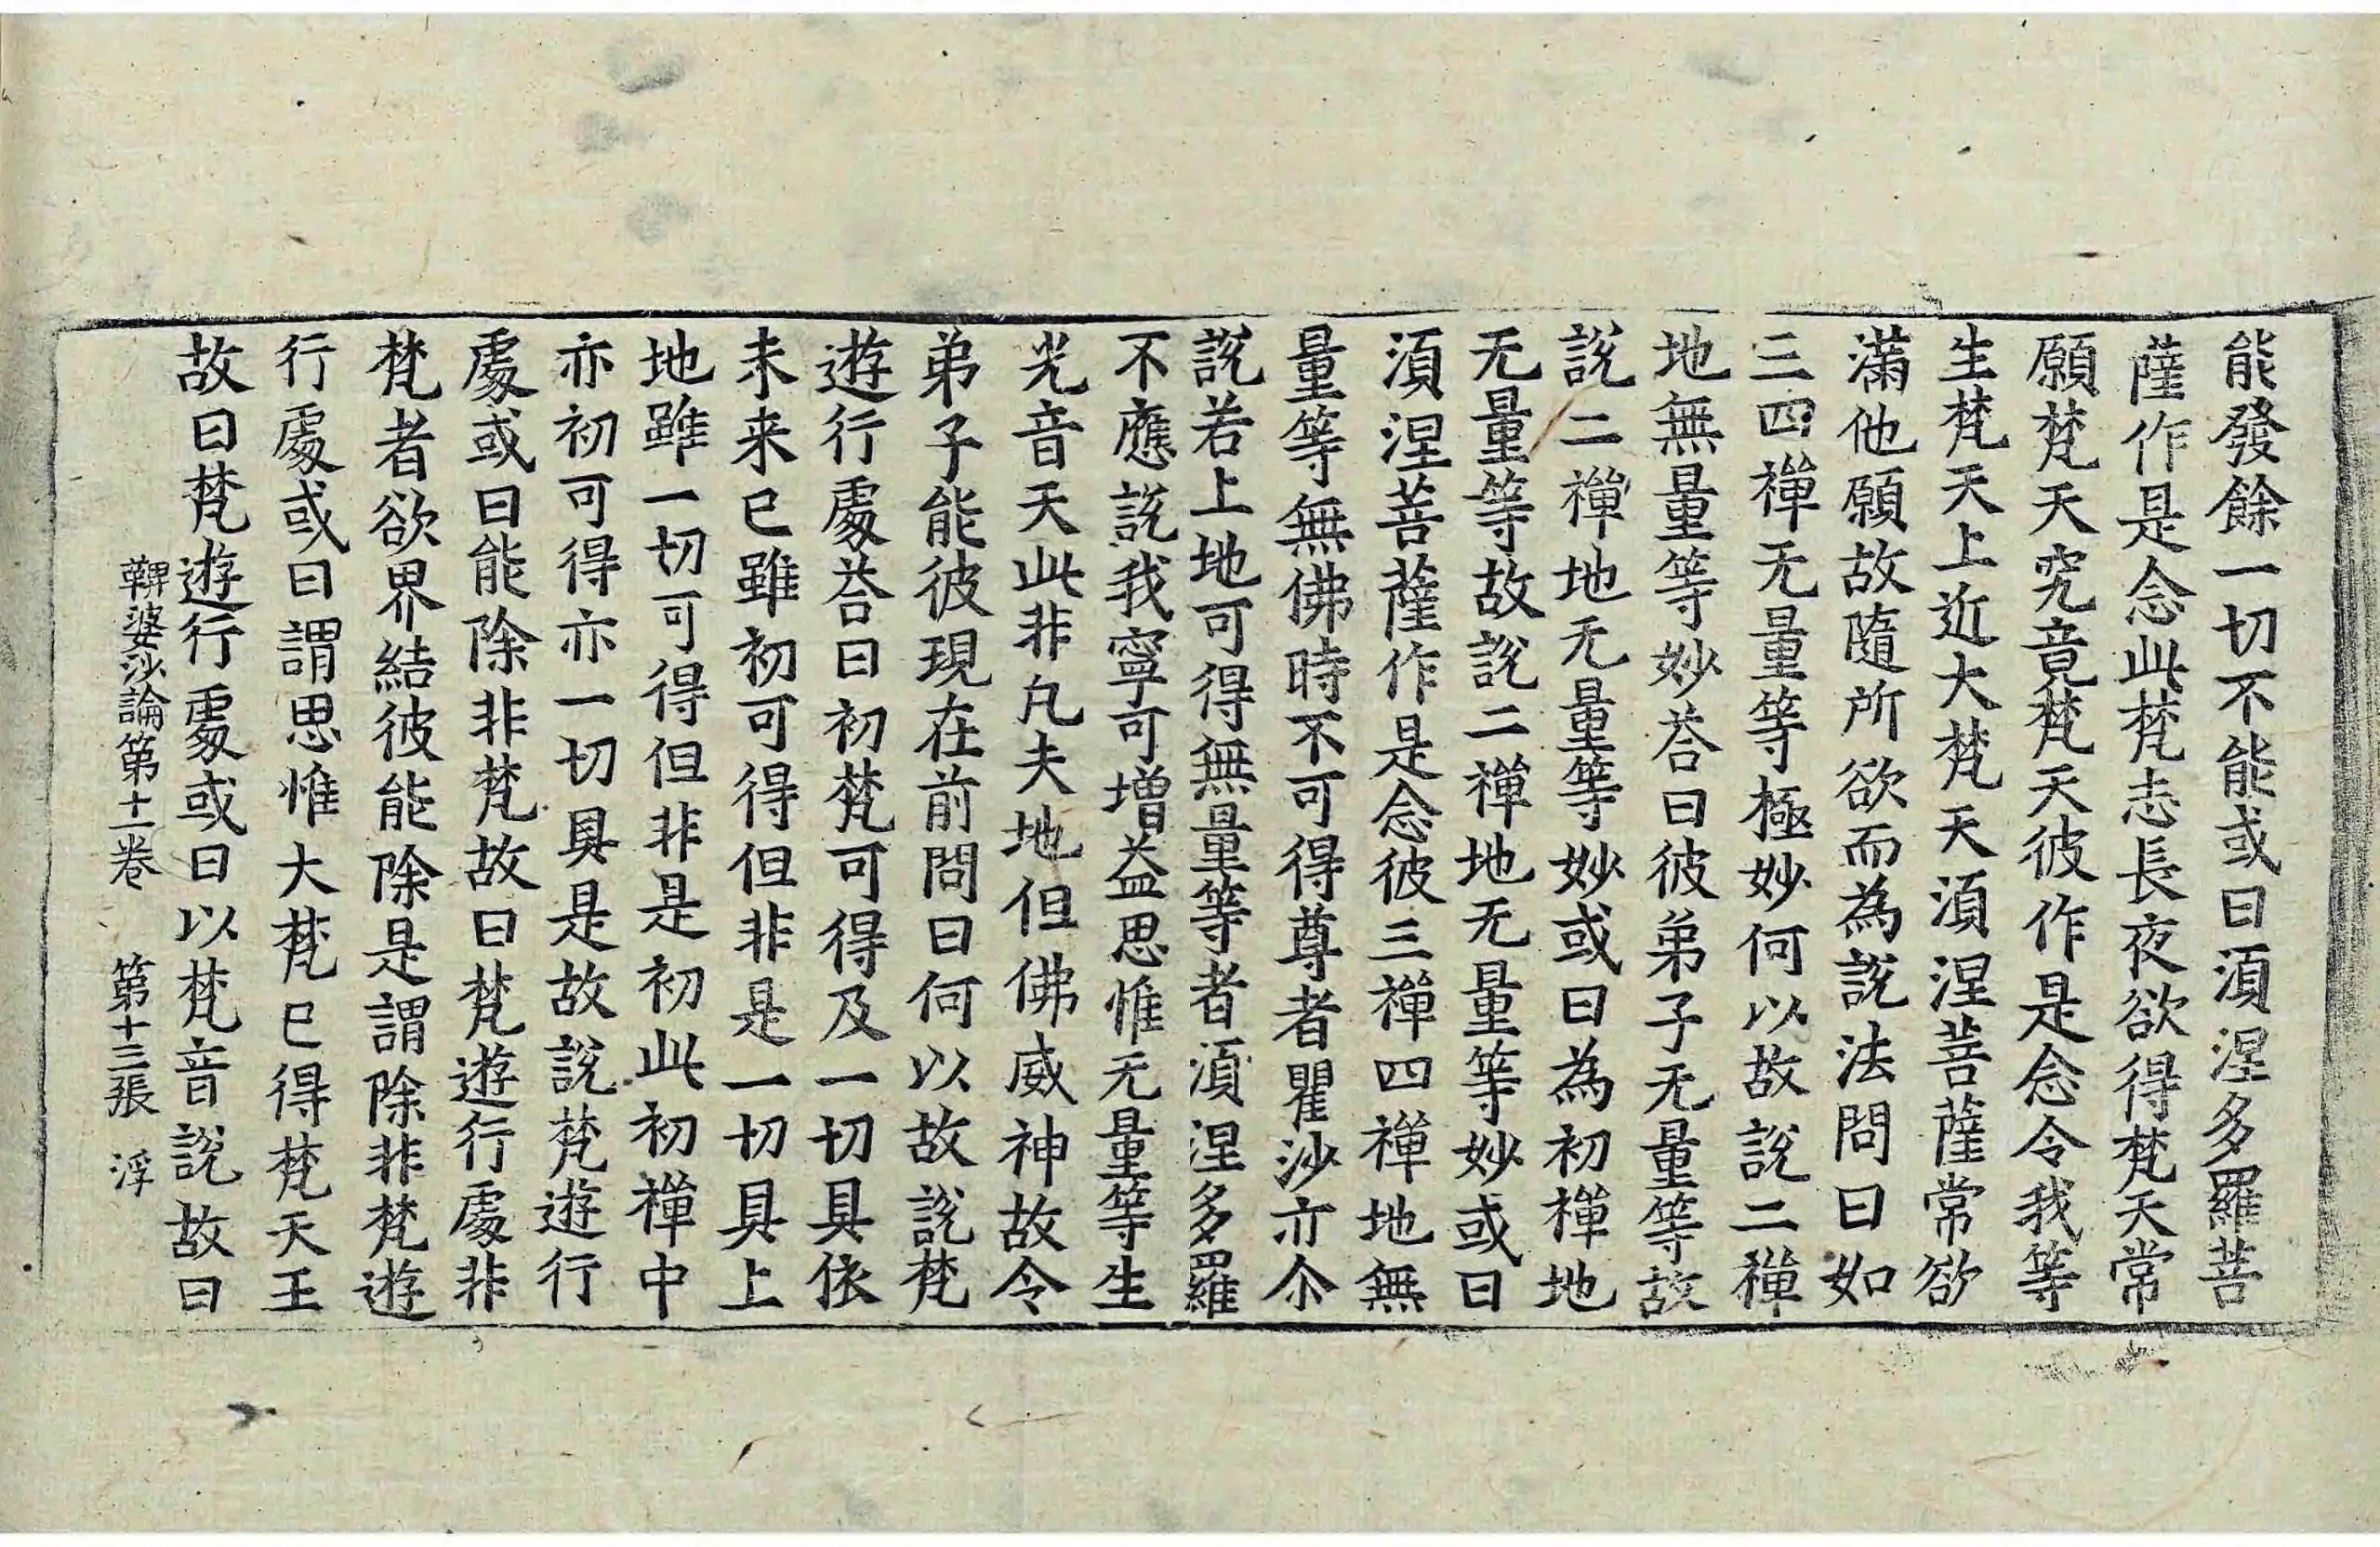 能發餘一切不能或曰湏涅多羅菩
薩作是念此梵志長夜欲得梵天常
願梵天究竟梵天彼作是念令我等
生梵天上近大梵天湏涅菩薩常欲
滿他願故隨所欲而為說法問曰如
三四禪无量等極妙何以故說二禪
地無量等妙荅曰彼弟子无量等故
說二禪地无量等妙或曰為初禪地
无量等故說二禪地无量等妙或曰
湏涅菩薩作是念彼三禪四禪地無
量等無佛時不可得尊者瞿沙亦尒
說若上地可得無量等者湏涅多羅
不應說我寧可增益思惟无量等生
光音天此非凡夫地但佛威神故令
弟子能彼現在前問曰何以故說梵
遊行處荅曰初梵可得及一切具依
未来已雖初可得但非是一切具上
地雖一切可得但非是初此初禪中
亦初可得亦一切具是故說梵遊行
處或曰能除非梵故曰梵遊行處非
梵者欲界結彼能除是謂除非梵遊
行處或曰謂思惟大梵已得梵天王
故曰梵遊行處或曰以梵音說故曰
鞞婆沙論第十一卷 第十三張 浮